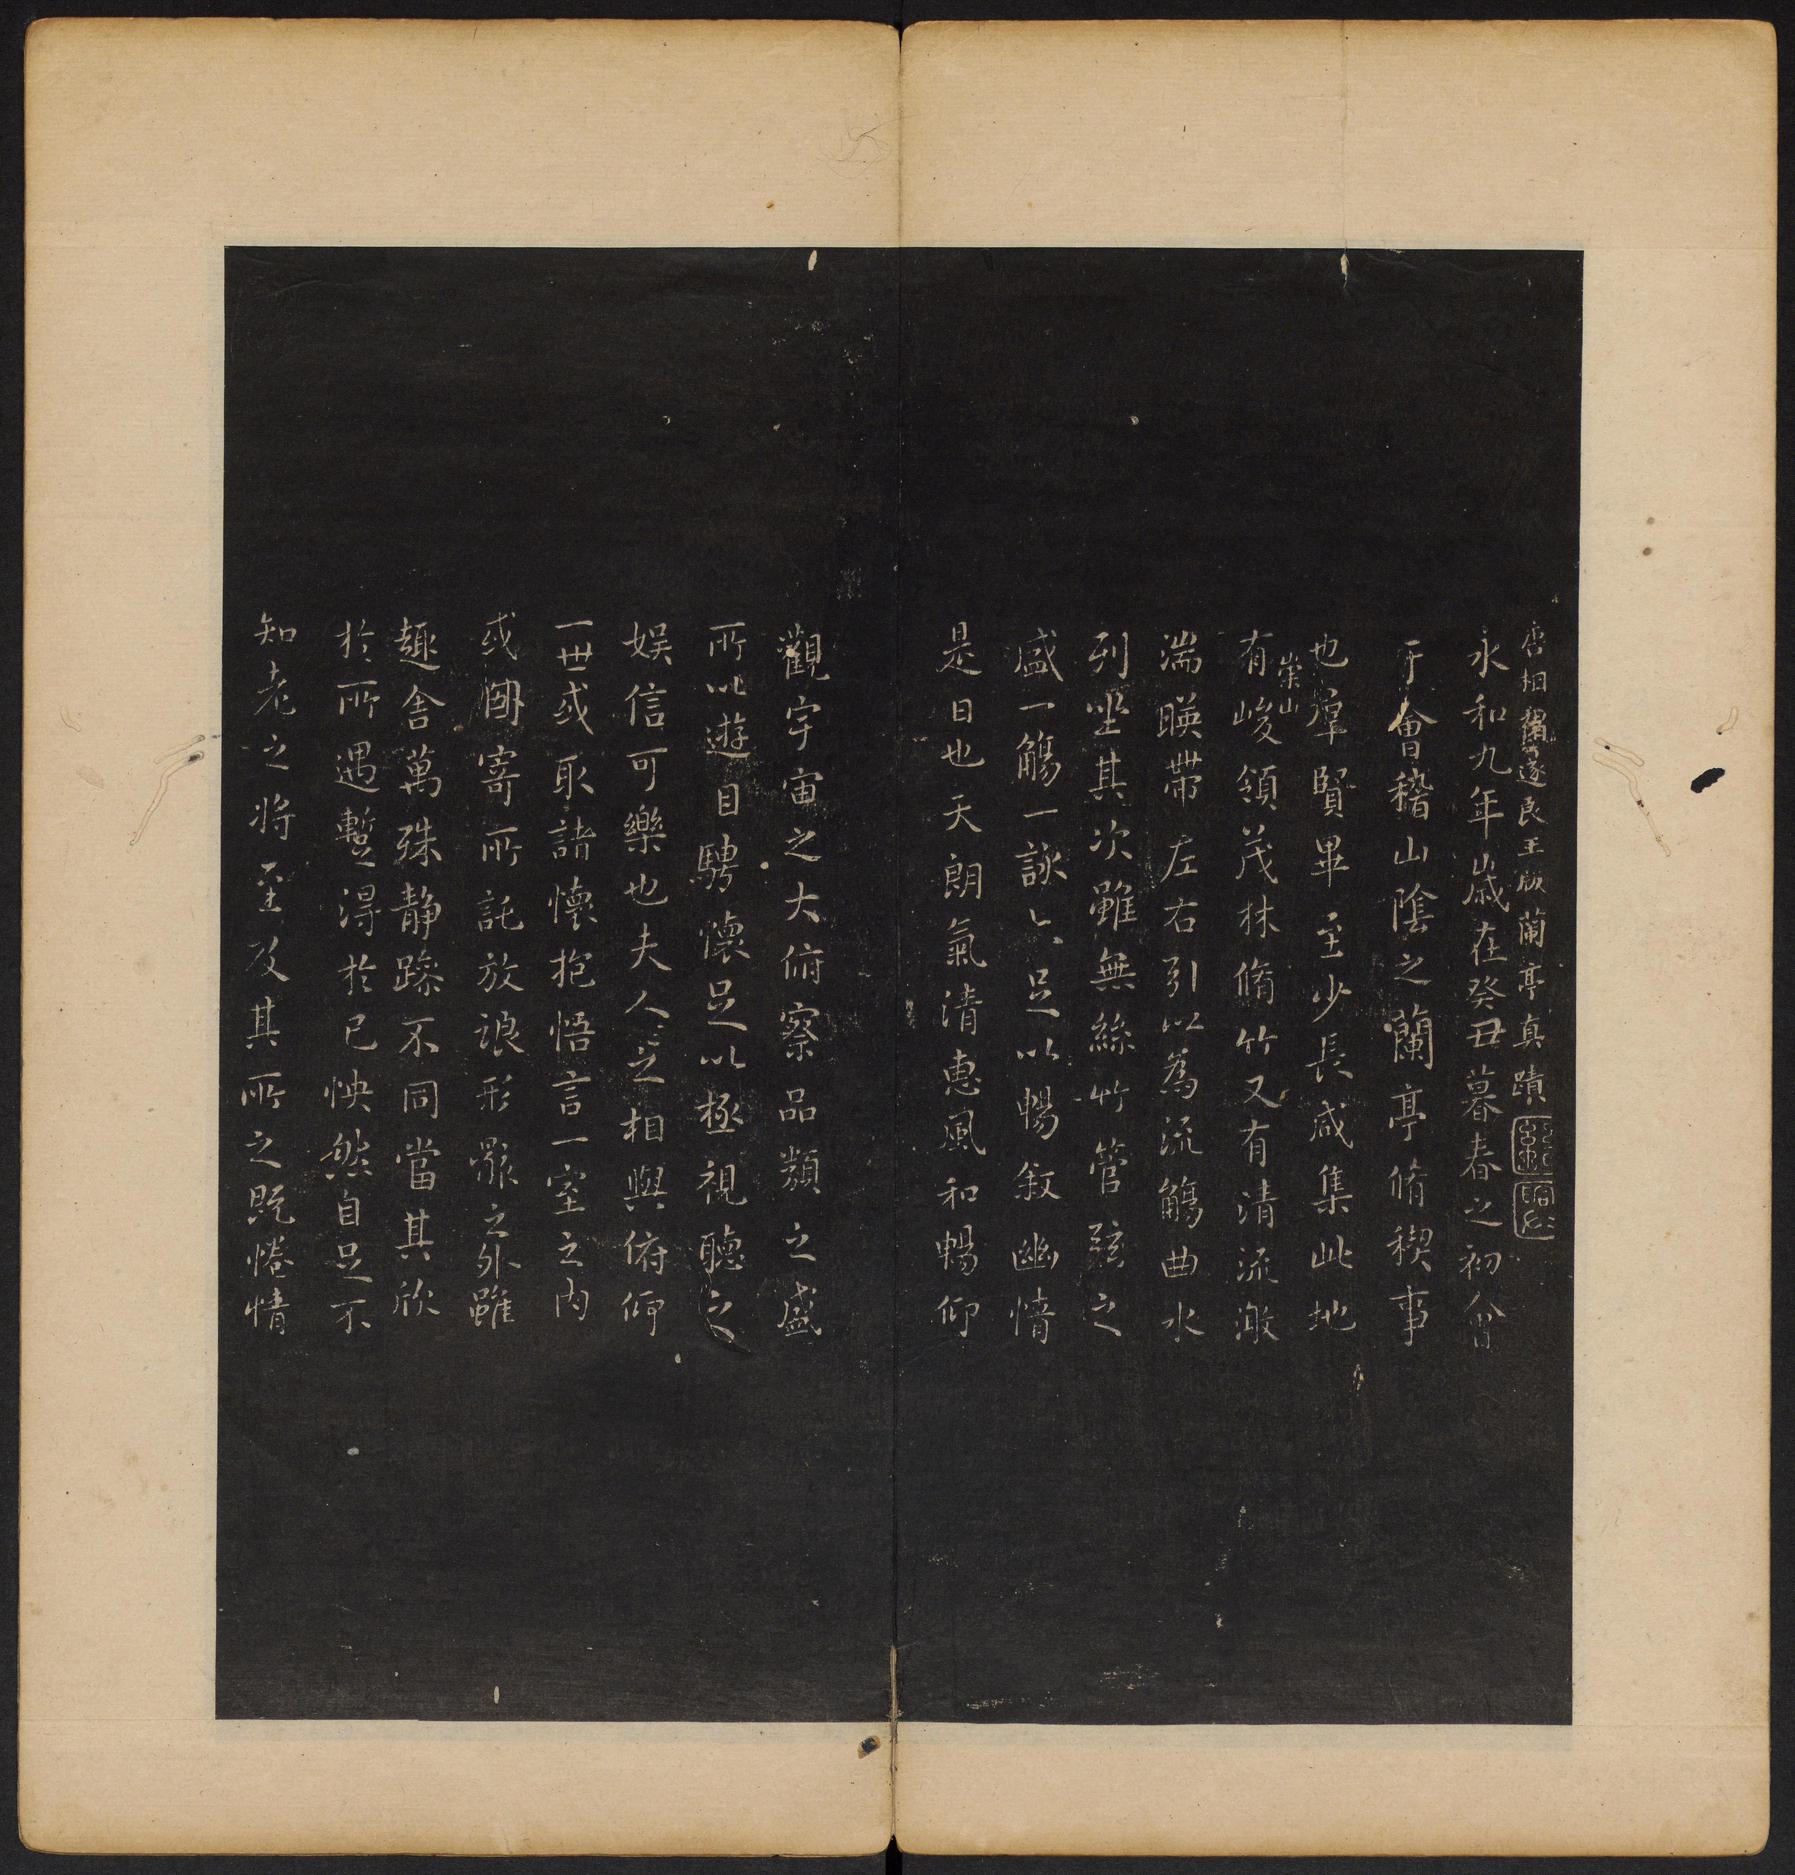 唐相褚遂良王版蘭亭真蹟
永和九年歲在癸丑暮春之初會
于會稽山陰之蘭亭脩稧事
也羣賢畢至少長咸集此地
有崇山峻領茂林脩竹又有清流激
湍暎帶左右引以為流觴曲水
列坐其次雖無絲竹管弦之
盛一觴一詠亦足以暢敘幽情
是日也天朗氣清惠風和暢仰
觀宇宙之大俯察品類之盛
所以遊目騁懷足以極視聽之
娛信可樂也夫人之相與俯仰
一世或取諸懷抱悟言一室之內
或因寄所託放浪形骸之外雖
趣舍萬殊靜躁不同當其欣
於所遇蹔得於己怏然自足不
知老之將至及其所之既惓情